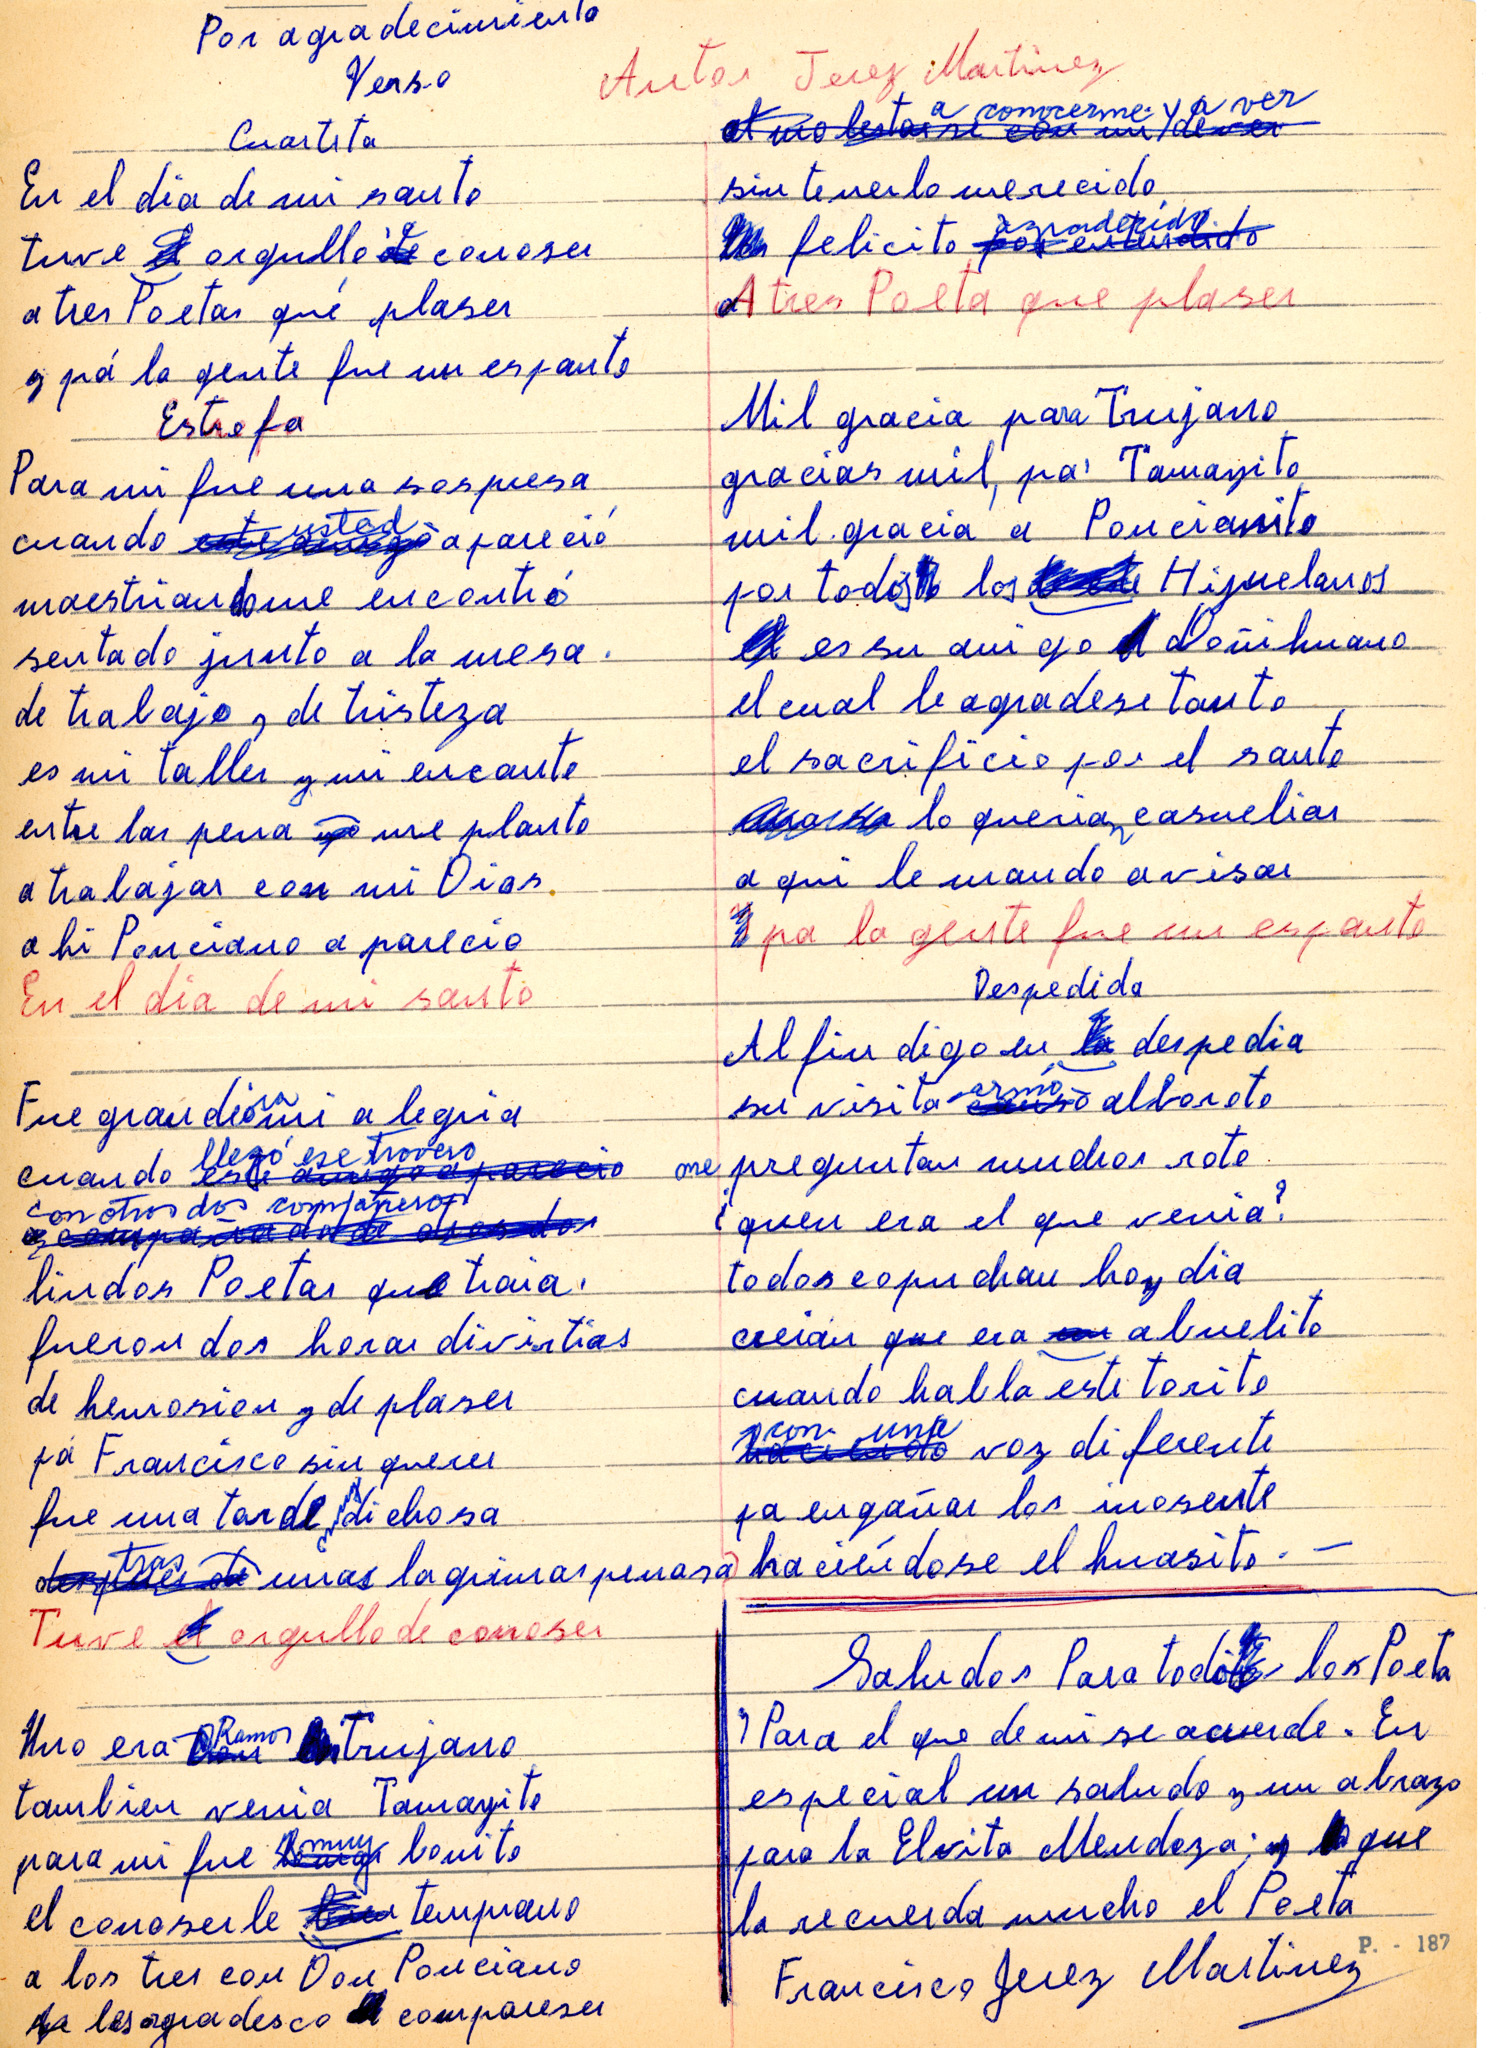 Por agradecimiento
Verso
Autor Jerez Martinez
Cuarteta
En el dia de mi santo
tuve orgullo de conoser
a tres Poetas qué plaser
y pá la gente fue un espanto
Estrofa
Para mi fue una sospresa
cuando usted apareció
maestriandome encontró
sentado junto a la mesa.
de trabajo y de tristeza
es mi taller y mi encanto
entre las pena me planto
a trabajar con mi Dios.
ahi Ponciano a parecio
En el dia de mi santo
Fue grandiosa mi alegria
cuando llegó ese trovero
con otros dos compañeros
lindos Poetas que traia.
fueron dos horas divirtias
de hemosion y de plaser
pá Francisco sin querer
fue una tarde dichosa
tras unas lagrimas penosa
Tuve orgullo de conoser
Uno era Ramos Trujano
tambien venia Tamayito
para mi fue muy bonito
el conoserle temprano
a los tres con Don Ponciano
les agradesco compareser
a conocerme y a ver
sin tenerlo merecido
felicito agradecido
A tres Poeta que plaser
Mil gracia para Trujano
gracias mil, pa' Tamayito
mil gracia a Poncianito
por todos los Higuelanos
es su amigo Doñihuano
el cual le agradese tanto
el sacrificio por el santo
lo queria y casueliar
aqui le mando avisar
y pa la gente fue un espanto
Despedida
Al fin digo en despedia
su visita armó alboroto
me preguntan muchos roto
¿quen era el que venia?
todos copuchan hoy dia
creian que era abuelito
cuando habla este torito
con una voz diferente
pa engañar los inosente
haciéndose el huasito. —
Saludos Para todos los Poeta
y Para el que de mi se acuerde. En
especial un saludo y un abrazo
para la Elvita Mendoza; y que
la recuerda mucho el Poeta
Francisco Jerez Martinez
P. - 187